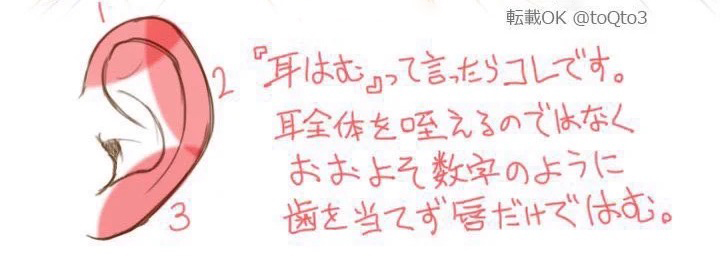 転載OK @toQto3
1
2
3
『耳はむ』って言ったらコレです。
耳全体を咥えるのではなく
おおよそ数字のように
歯を当てず唇だけではむ。